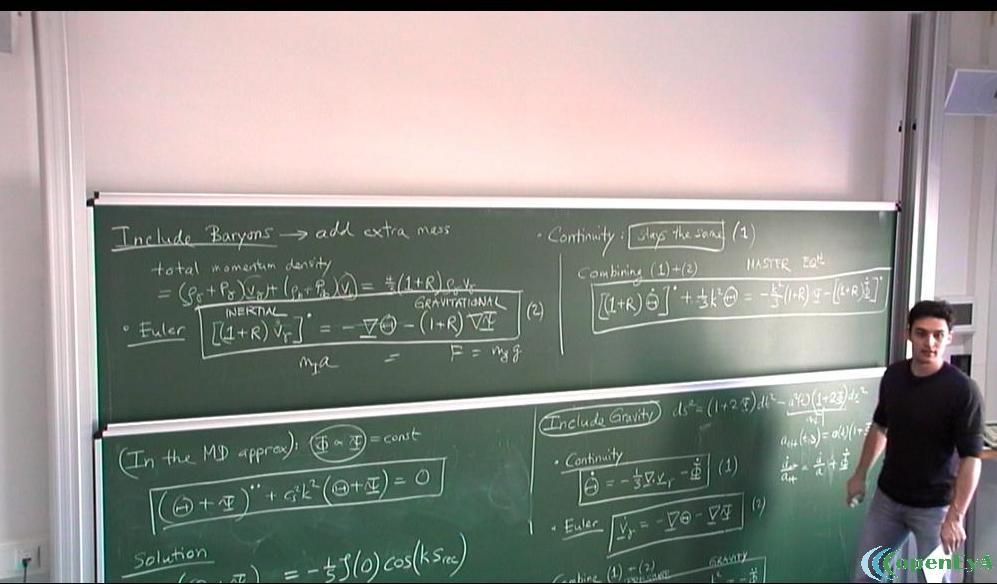 Include Baryons → add extra mass
total momentum density
= (ρ_γ + P_γ) v_γ + (ρ_b + P_b) v_b = 4/3 (1+R) ρ_γ v_γ
INERTIAL GRAVITATIONAL
• Euler [(1+R) v_γ]˙ = -∇Θ - (1+R) ∇Ψ (2)
m_I a = F = m_g g
• Continuity : stays the same (1)
Combining (1)+(2) MASTER EQN
[(1+R) Θ̇]˙ + 1/3 k² Θ = -k²/3 (1+R) Ψ - [(1+R) Φ̇]˙
(In the MD approx): Φ ∝ Ψ = const
(Θ + Ψ)¨ + c_s² k² (Θ + Ψ) = 0
Solution
= -1/5 ζ(0) cos(k s_rec)
Include Gravity ds² = (1+2Ψ)dt² - a²(t)(1+2Φ)dx²
• Continuity
Θ̇ = -1/3 ∇·v_γ - Φ̇ (1)
• Euler v̇_γ = -∇Θ - ∇Ψ (2)
Combine (1) + (2)
GRAVITY
openEya